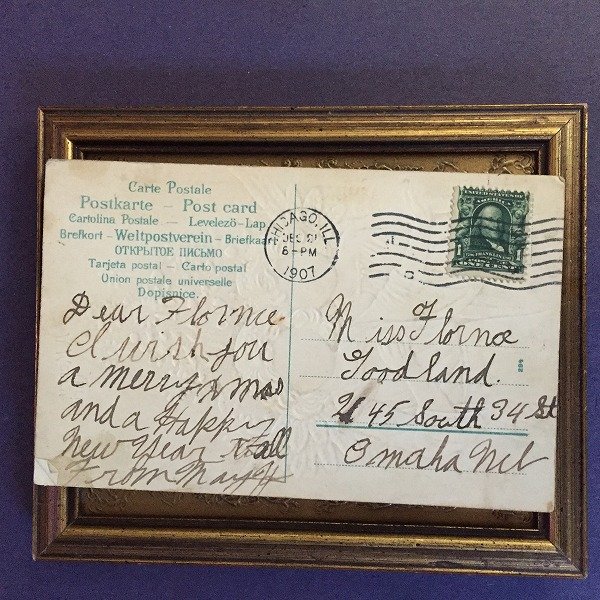 Carte Postale
Postkarte — Post card
Cartolina Postale — Levelező-Lap
Brefkort — Weltpostverein — Briefkaart
ОТКРЫТОЕ ПИСЬМО
Tarjeta postal — Carto postal
Union postale universelle
Dopisnice
CHICAGO, ILL
DEC
8-PM
1907
1
FRANKLIN
1
Dear Flornce
I wish you
a merry xmas
and a Happy
New Year to all
From May H
Miss Flornce
Goodland.
2145 South 34 St
Omaha Neb